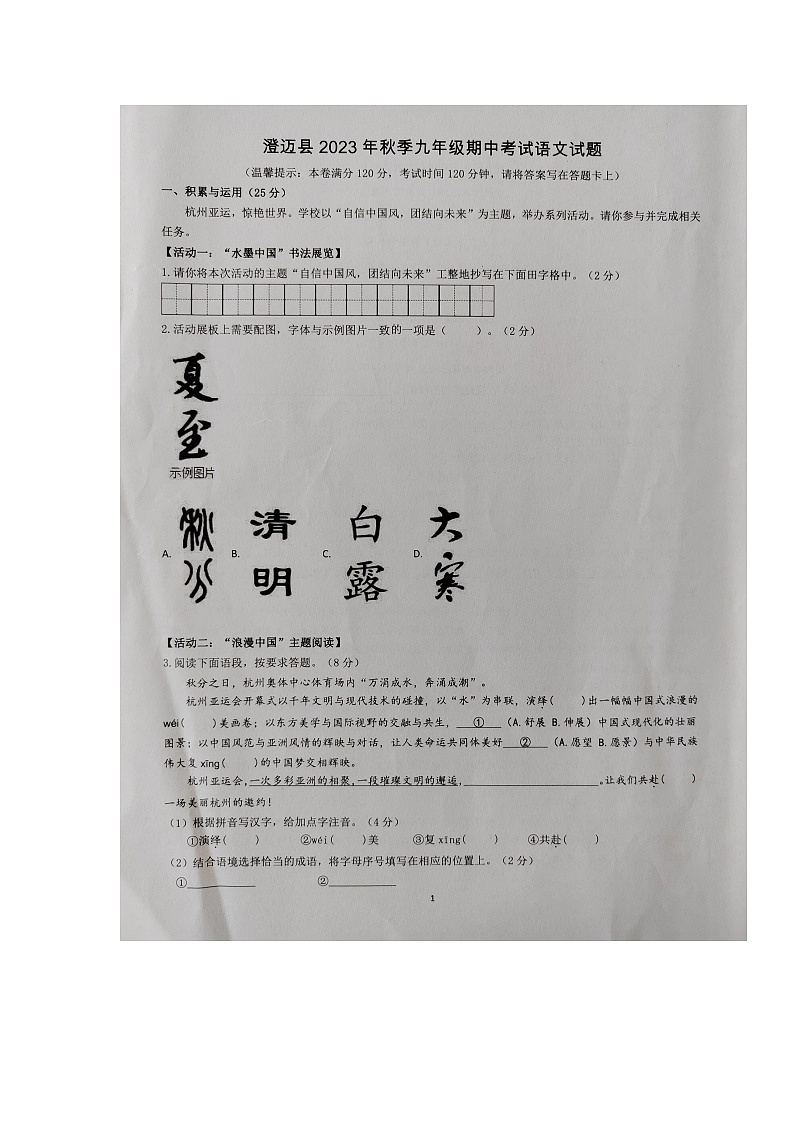 澄迈县 2023 年秋季九年级期中考试语文试题
（温馨提示：本卷满分 120 分，考试时间 120 分钟，请将答案写在答题卡上）
一、积累与运用（25 分）
杭州亚运，惊艳世界。学校以“自信中国风，团结向未来”为主题，举办系列活动。请你参与并完成相关
任务。
【活动一：“水墨中国”书法展览】
1.请你将本次活动的主题“自信中国风，团结向未来”工整地抄写在下面田字格中。（2 分）
2.活动展板上需要配图，字体与示例图片一致的一项是（ ）。（2 分）
夏
至
示例图片
A. 秋分 B. 清明 C. 白露 D. 大寒
【活动二：“浪漫中国”主题阅读】
3.阅读下面语段，按要求答题。（8 分）
秋分之日，杭州奥体中心体育场内“万涓成水，奔涌成潮”。
杭州亚运会开幕式以千年文明与现代技术的碰撞，以“水”为串联，演绎( )出一幅幅中国式浪漫的
wéi( )美画卷；以东方美学与国际视野的交融与共生，___①___（A.舒展 B.伸展）中国式现代化的壮丽
图景；以中国风范与亚洲风情的辉映与对话，让人类命运共同体美好___②___（A.愿望 B.愿景）与中华民族
伟大复 xīng( )的中国梦交相辉映。
杭州亚运会，一次多彩亚洲的相聚，一段璀璨文明的邂逅，____________________。让我们共赴( )
一场美丽杭州的邀约！
（1）根据拼音写汉字，给加点字注音。（4 分）
①演绎( ) ②wéi( )美 ③复 xīng( ) ④共赴( )
（2）结合语境选择恰当的成语，将字母序号填写在相应的位置上。（2 分）
①____________ ②____________
1